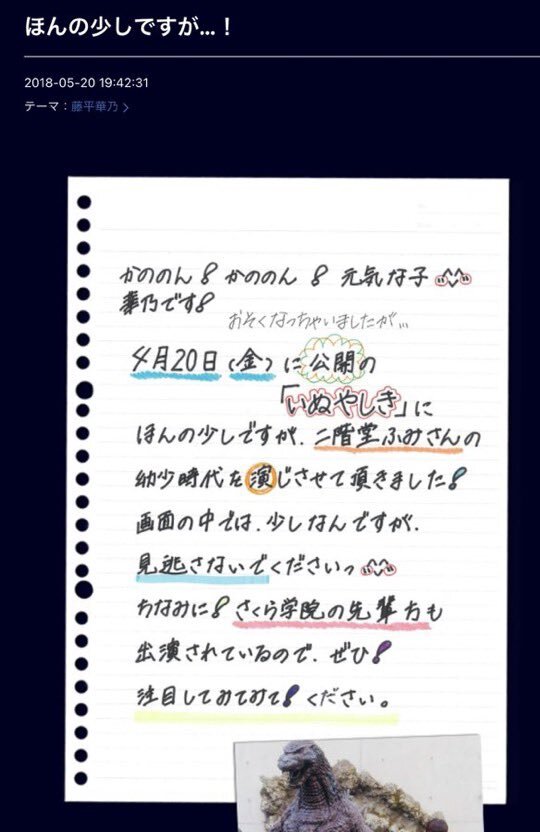 ほんの少しですが…！
2018-05-20 19:42:31
テーマ：藤平華乃 >
かののん！かののん！元気な子
華乃です！
おそくなっちゃいましたが…
4月20日(金)に公開の
「いぬやしき」に
ほんの少しですが、二階堂ふみさんの
幼少時代を演じさせて頂きました！
画面の中では、少しなんですが、
見逃さないでくださいっ
ちなみに！さくら学院の先輩方も
出演されているので、ぜひ！
注目してみてみて！ください。